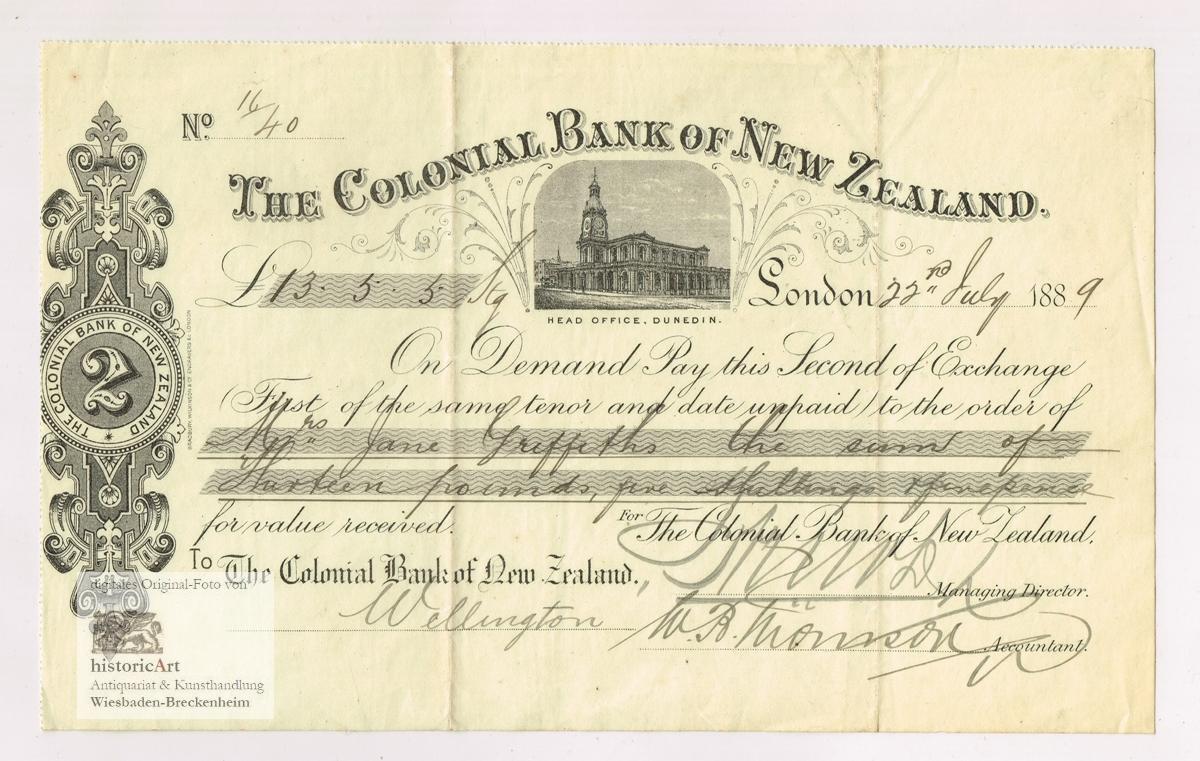 No. 16/40
THE COLONIAL BANK OF NEW ZEALAND.
£13. 5. 5
London 22nd July 1889
HEAD OFFICE, DUNEDIN.
On Demand Pay this Second of Exchange
(First of the same tenor and date unpaid) to the order of
Mrs Jane Griffiths the sum of
Thirteen pounds, five shillings & fivepence
for value received.
For The Colonial Bank of New Zealand.
To The Colonial Bank of New Zealand.
Managing Director.
Wellington
W. B. Thomson
Accountant.
THE COLONIAL BANK OF NEW ZEALAND
2
BRADBURY, WILKINSON & Co ENGRAVERS &c LONDON
digitales Original-Foto von
historicArt
Antiquariat & Kunsthandlung
Wiesbaden-Breckenheim